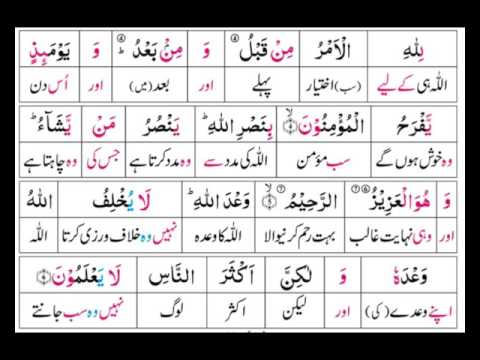 لِلهِ الْاَمْرُ مِنْ قَبْلُ وَ مِنْۢ بَعْدُ ؕ وَ يَوْمَىِٕذٍ
اللہ ہی کے لیے (سب) اختیار پہلے اور بعد (میں) اور اُس دن
يَّفْرَحُ الْمُؤْمِنُوْنَ ۙ بِنَصْرِ اللهِ ؕ يَنْصُرُ مَنْ يَّشَآءُ ؕ
وہ خوش ہوں گے سب مؤمن اللہ کی مدد سے وہ مدد کرتا ہے جس کی وہ چاہتا ہے
وَ هُوَ الْعَزِيْزُ الرَّحِيْمُ ۙ وَعْدَ اللهِ ؕ لَا يُخْلِفُ اللهُ
اور وہی نہایت غالب بہت رحم کرنیوالا اللہ کا وعدہ نہیں وہ خلاف ورزی کرتا اللہ
وَعْدَهٗ وَ لٰكِنَّ اَكْثَرَ النَّاسِ لَا يَعْلَمُوْنَ
اپنے وعدے (کی) اور لیکن اکثر لوگ نہیں وہ سب جانتے